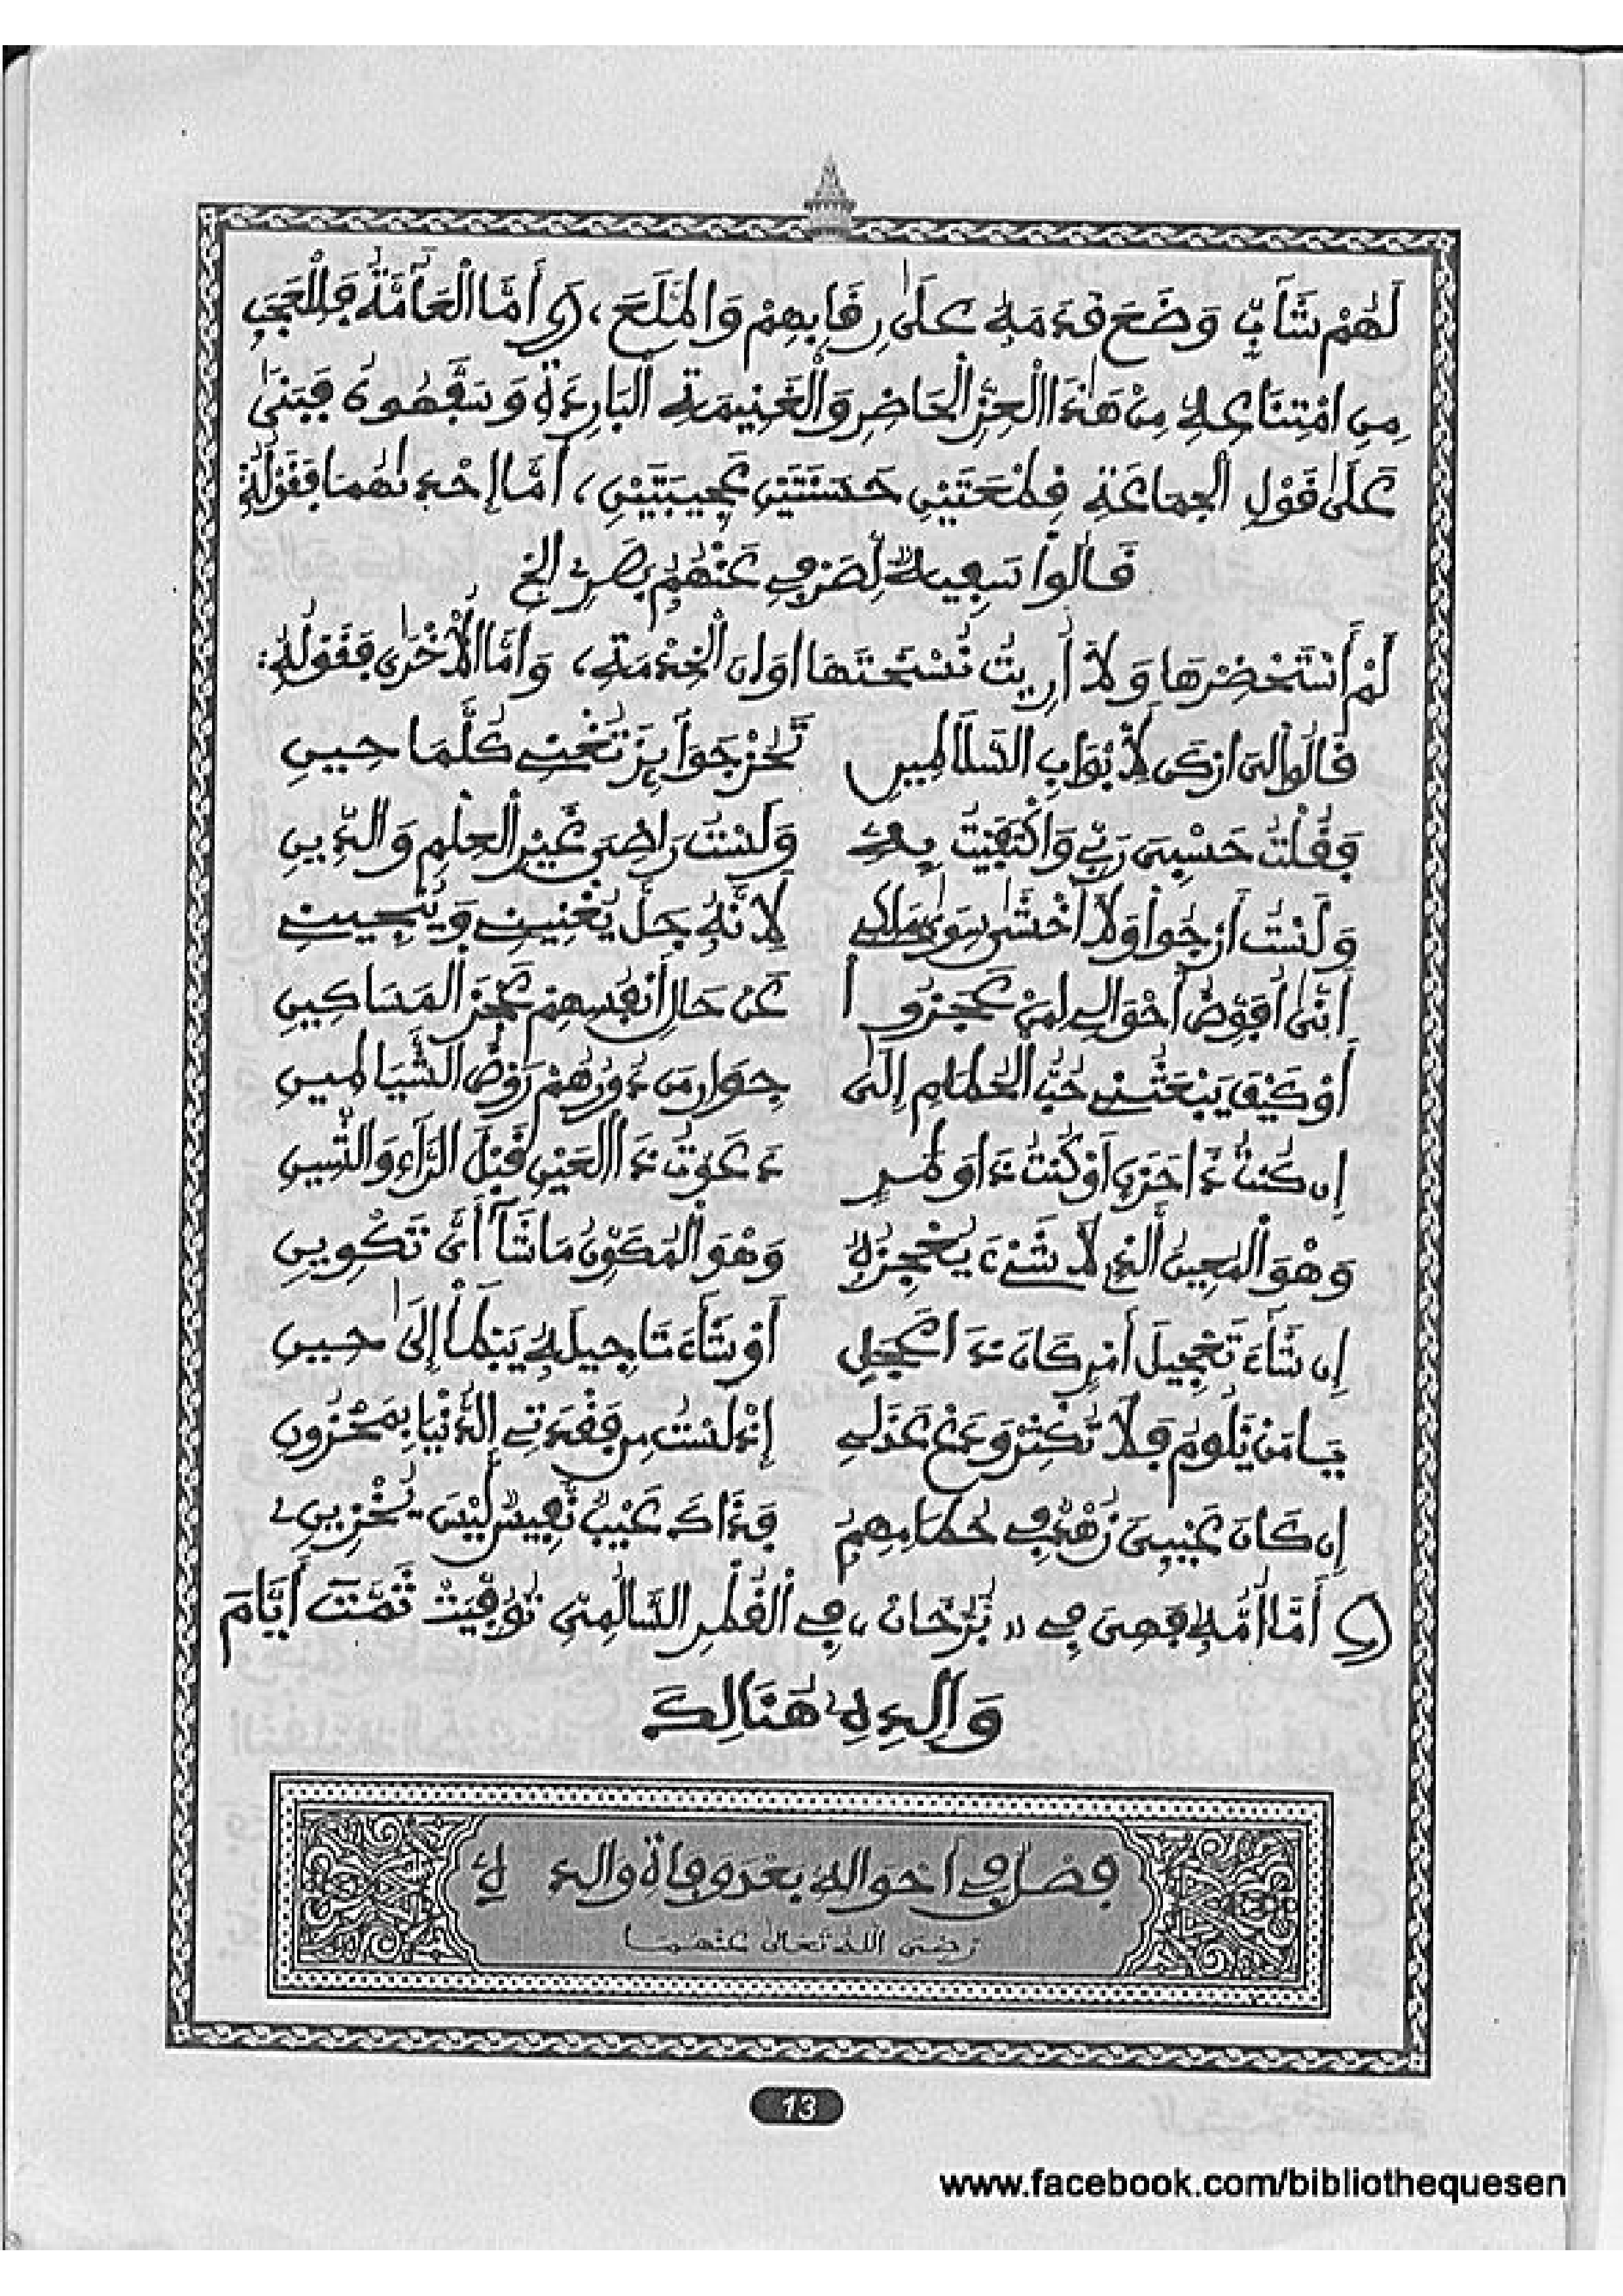 لَهُمْ شَآبٌّ وَضَعَ قَدَمَهُ عَلَىٰ رِقَابِهِمْ وَالْمَلَعَ، (و) أَمَّا الْعَآمَّةُ فَلِلْعَجَبِ
مِنِ امْتِنَاعِهِ مِنْ هَٰذَا الْعِزِّ الْحَاضِرِ وَالْغَنِيمَةِ الْبَارِدَةِ وَسَفَّهُوهُ فَبَنَىٰ
عَلَىٰ قَوْلِ الْجَمَاعَةِ قِطْعَتَيْنِ حَسَنَتَيْنِ عَجِيبَتَيْنِ، أَمَّا إِحْدَىٰهُمَا فَقَوْلُهُ
قَالُوا سَفِيهٌ لِصَرْفِي عَنْهُمُ بَصَرِي الخ
لَمْ أَسْتَحْضِرْهَا وَلَا أُرِيتُ نُسْخَتَهَا أوَانَ الْخِدْمَةِ، وَأَمَّا الْأُخْرَىٰ فَقَوْلُهُ:
قَالُوا لِيَ ارْكَنْ لِأَبْوَابِ السَّلَاطِينِ تَحُزْ جَوَآئِزَ تُغْنِي كُلَّمَا حِينِ
فَقُلْتُ حَسْبِيَ رَبِّي وَاكْتَفَيْتُ بِهِ وَلَسْتُ رَاضِيَ غَيْرِ الْعِلْمِ وَالدِّينِ
وَلَسْتُ أَرْجُو وَلَا أَخْشَىٰ سِوَىٰ مَلِكِي لِأَنَّهُ جَلَّ يُغْنِينِي وَيُنْجِينِي
أَنَّىٰ أُفَوِّضُ أَحْوَالِي لِمَنْ عَجَزُوا عَنْ حَالِ أَنْفُسِهِمْ عَجْزَ الْمَسَاكِينِ
أَوْ كَيْفَ يَبْعَثُنِي حُبُّ الْحُطَامِ إِلَىٰ جِوَارِ مَنْ دُورُهُمْ رَوْضُ الشَّيَاطِينِ
إِن كُنتُ ذَا حَزَنٍ أَوْ كُنتُ ذَا وَطَرٍ دَعَوْتُ ذَا الْعَيْنِ قَبْلَ الرَّاءِ وَالشِّينِ
وَهْوَ الْمُعِينُ الَّذِي لَا شَيْءَ يُعْجِزُهُ وَهْوَ الْمُكَوِّنُ مَا شَآ أَيَّ تَكْوِينِ
إِن شَاءَ تَعْجِيلَ أَمْرٍ كَانَ ذَا عَجَلٍ أَوْ شَاءَ تَاجِيلَهُ يَبْطَأْ إِلَىٰ حِينِ
يَا مَنْ يَلُومُ فَلَا تُكْثِرْ وَدَعْ عَذَلِي إِذْ لَسْتُ مِن فَقْدَتِي الدُّنْيَا بِمَحْزُونِ
إِن كَانَ عَيْبِيَ زُهْدٌ فِي حُطَامِهِمُ فَذَاكَ عَيْبٌ نَفِيسٌ لَيْسَ يُخْزِينِي
(و) أَمَّا أُمُّهُ فَهِيَ فِي «بُرُخَان» فِي الْقُطْرِ السَّالُمِيِّ تُوُفِّيَتْ ثَمَّتَ أَيَّامَ
وَالِدِهِ هُنَالِكَ
فصل في أحواله بعد وفاة والده
رضى الله تعالى عنهما
13
www.facebook.com/bibliothequesen